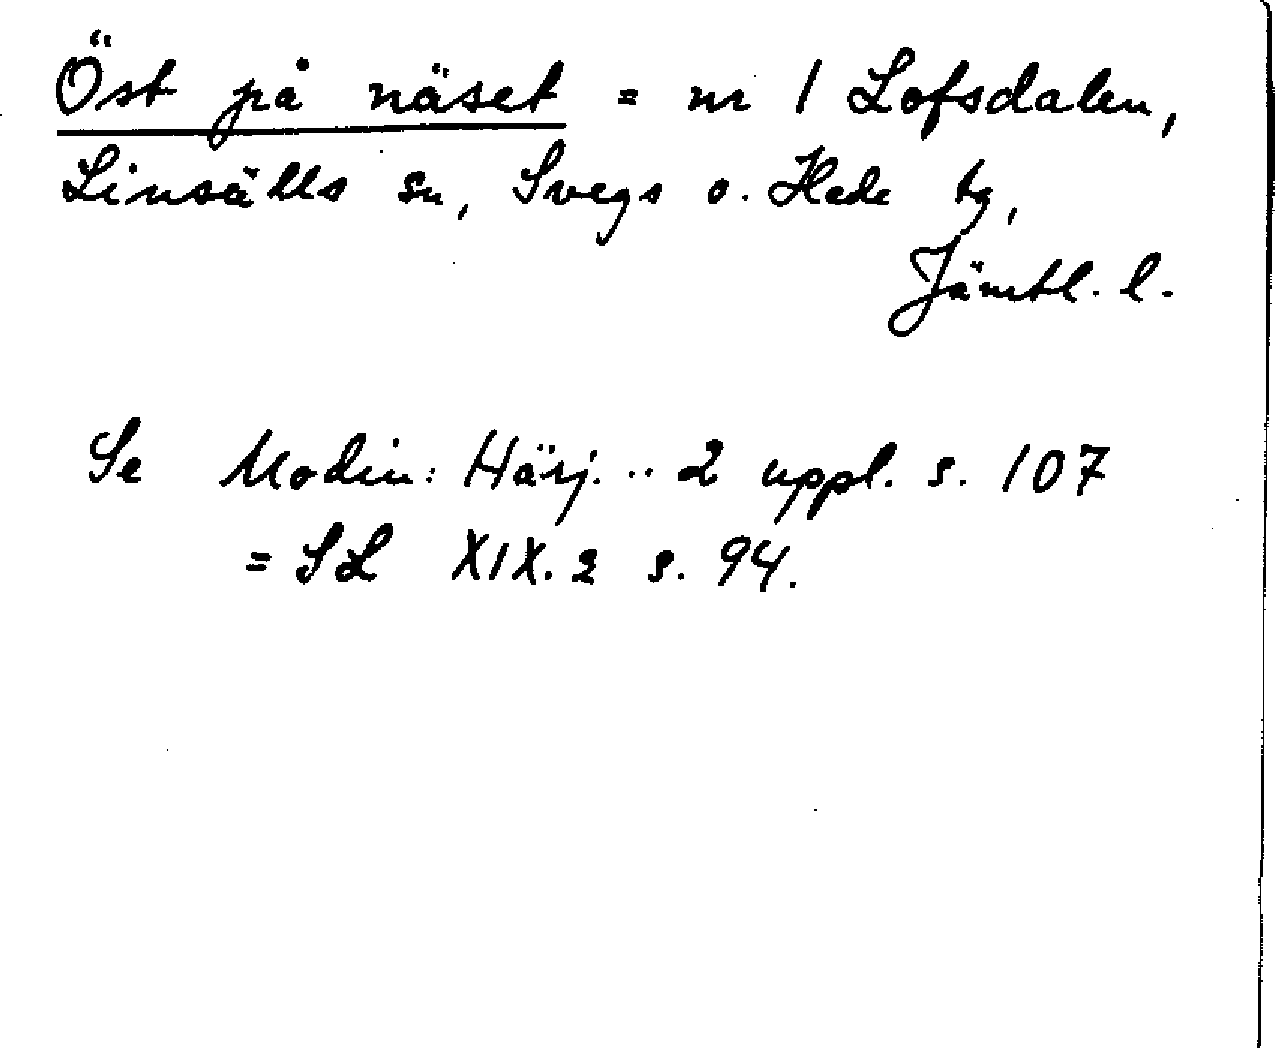 Öst på näset = nr 1 Lofsdalen,
Linsälls sn, Svegs o. Hede tg,
Jämtl. l.
Se Modin: Härj. .. 2 uppl. s. 107
= SL XIX. 2 s. 94.